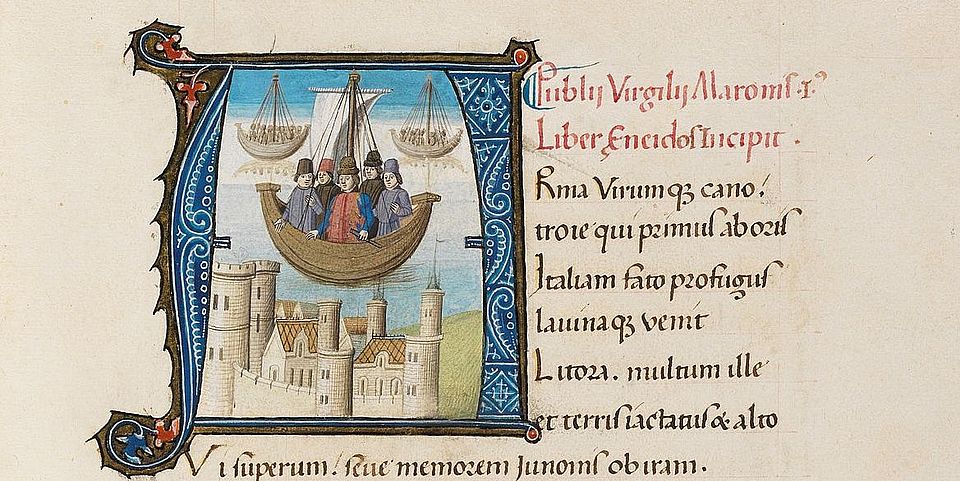 Publij Virgilij Maronis .I.
Liber Eneidos Incipit .
Rma Virumq3 cano.
troie qui primus ab oris
Italiam fato profugus
lauinaq3 venit
Litora . multum ille
et terris iactatus & alto
Vi superum. seue memorem Junonis ob iram.